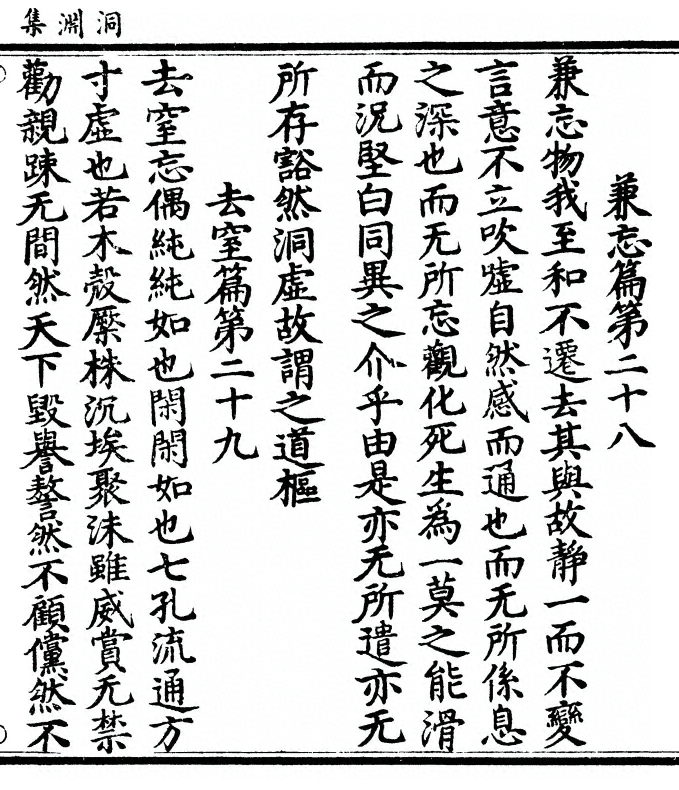 洞淵集
兼忘篇第二十八
兼忘物我至和不遷去其與故靜一而不變
言意不立吹噓自然感而通也而无所係息
之深也而无所忘觀化死生為一莫之能滑
而況堅白同異之介乎由是亦无所遣亦无
所存豁然洞虛故謂之道樞
去窒篇第二十九
去窒忘偶純純如也閑閑如也七孔流通方
寸虛也若木殼橜株沉埃聚沫雖威賞无禁
勸親踈无間然天下毀譽謷然不顧儻然不